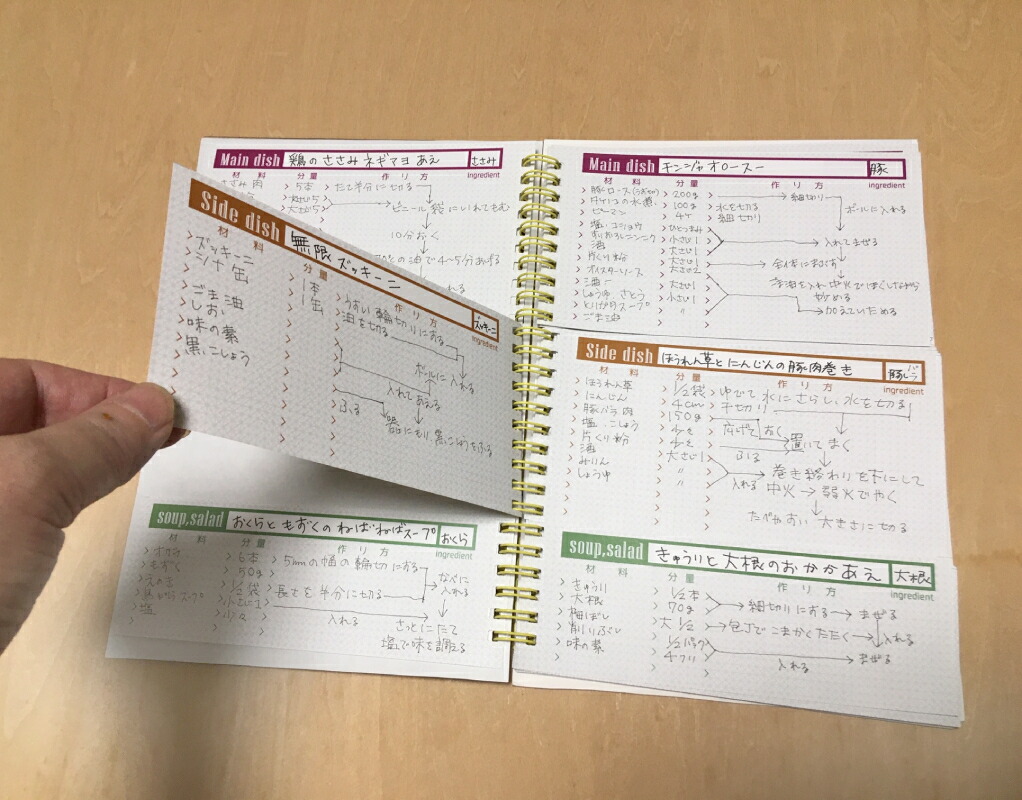 Main dish 鶏のささみネギマヨあえ ささみ
材料 分量 作り方 ingredient
ささみ肉 5本 たて半分に切る
大さじ5 ビニール袋にいれてもむ
10分おく
の油で4~5分あげる
Side dish 無限ズッキーニ ズッキーニ
材料 分量 作り方 ingredient
ズッキーニ 1本 うすい輪切りにする
シナ缶 1缶 油を切る
ボールに入れる
ごま油
しお 入れてあえる
味の素
黒こしょう ふる 器にもり、黒こしょうをふる
soup,salad おくらともずくのねばねばスープ おくら
材料 分量 作り方 ingredient
オクラ 6本 5mmの幅の輪切にする なべに入れる
もずく 50g
えのき 1/2袋 長さを半分に切る
鳥がらスープ 小さじ1 入れる さっとにたて
塩 少々 塩で味を調える
Main dish チンジャオロースー 豚
材料 分量 作り方 ingredient
豚ロース 200g 細切り
タケノコの水煮 100g 水を切る ボールに入れる
ピーマン 4ケ 細切り
塩・コショウ ひとつまみ
すりおろしニンニク 小さじ1 入れてまぜる
酒 大さじ1
片くり粉 大さじ1 全体にまぶす
オイスターソース 大さじ2
しょうゆ さとう 大さじ1 炒める
とりガラスープ 小さじ1 加えていためる
ごま油 〃
Side dish ほうれん草とにんじんの豚肉巻き 豚バラ
材料 分量 作り方 ingredient
ほうれん草 1/2袋 ゆでて水にさらし、水を切る
にんじん 4cm 千切り
豚バラ肉 150g 広げておく 置いてまく
塩、こしょう 少々 ふる
片くり粉 少々
油 大さじ1 巻き終わりを下にして
みりん 〃 入れる 中火→弱火でやく
しょうゆ 〃 たべやすい大きさに切る
soup,salad きゅうりと大根のおかかあえ 大根
材料 分量 作り方 ingredient
きゅうり 1/2本 細切りにする まぜる
大根 70g
梅ぼし 大1/2 包丁でこまかくたたく 入れる
削りぶし 1/2パック まぜる
味の素 4フリ 入れる